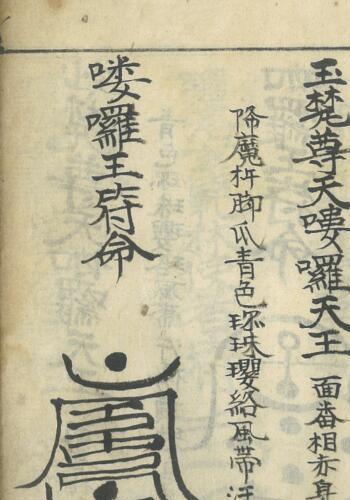 玉梵尊天嘍囉天王 面番相赤身
降魔杵脚爪青色珎珠瓔珞風帶汪
嘍囉王符命